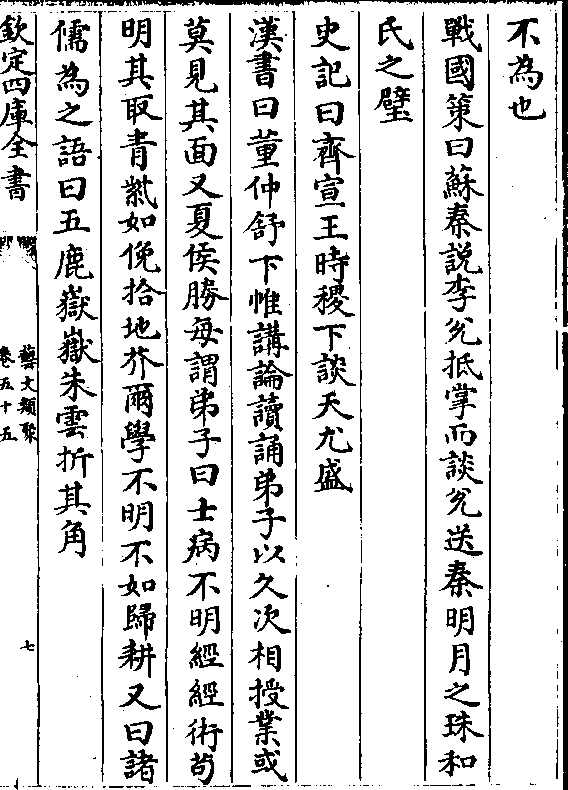 不為也
戰國策曰蘇秦説李兊抵掌而談兊送秦明月之珠和
氏之璧
史記曰齊宣王時稷下談天尤盛
漢書曰董仲舒下帷講論讀誦弟子以久次相授業或
莫見其面又夏侯勝每謂弟子曰士病不明經經術茍
明其取青紫如俛拾地芥爾學不明不如歸耕又曰諸
儒為之語曰五鹿嶽嶽朱雲折其角
欽定四庫全書
藝文類聚
卷五十五
七